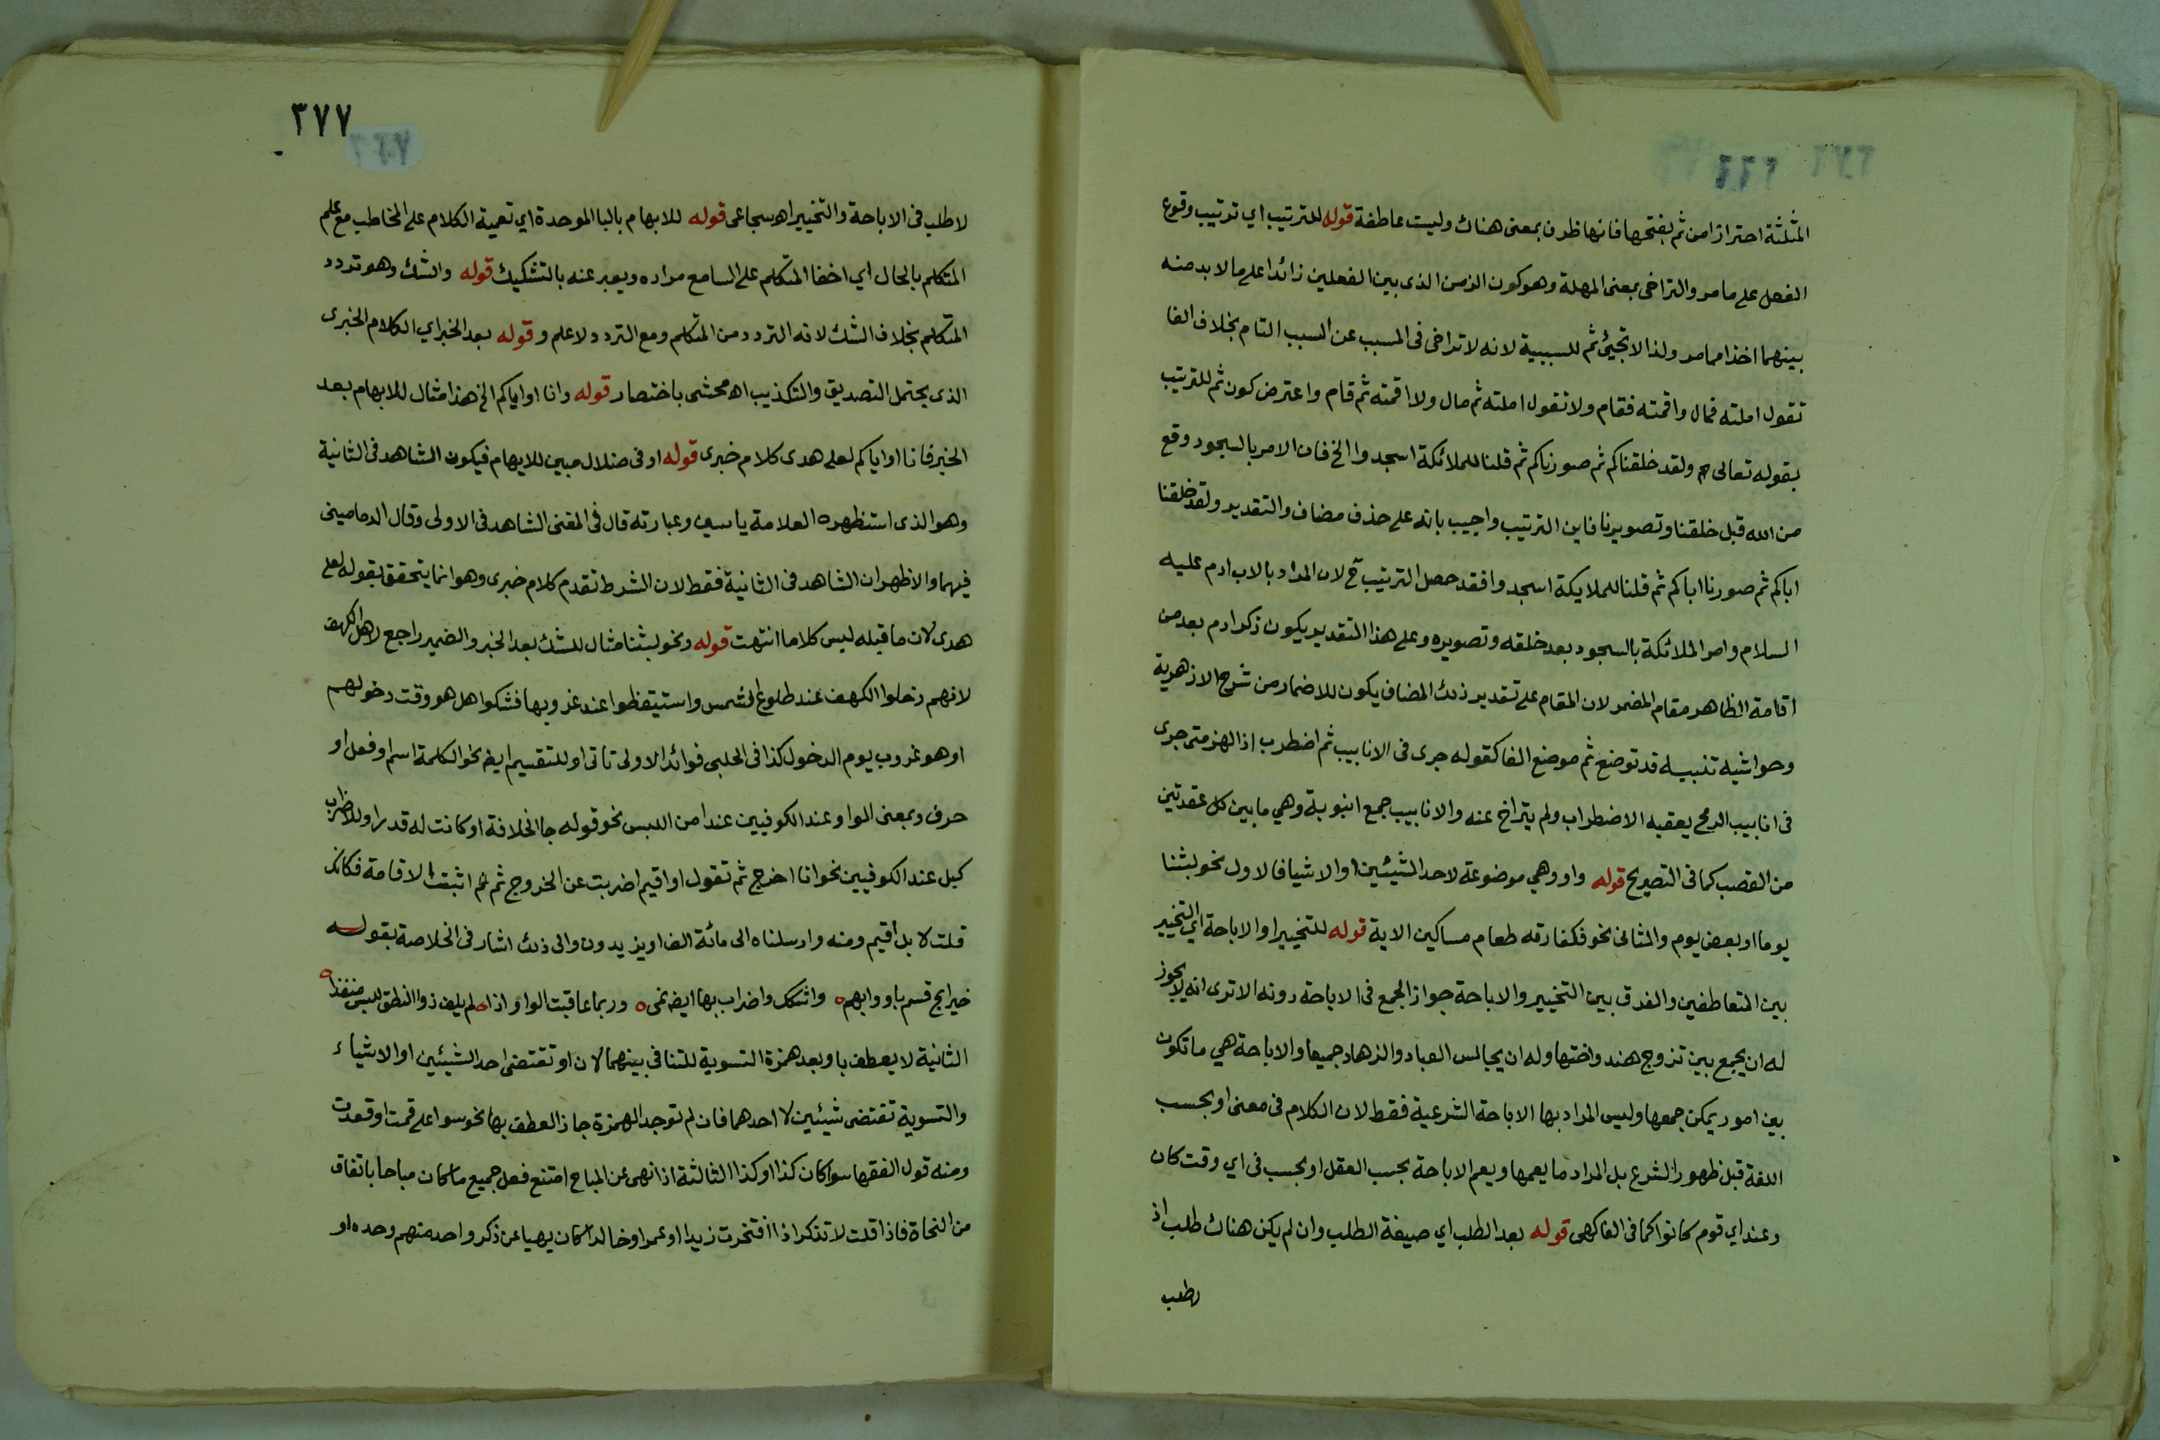 المثلثة احترازا من ثم بفتحها فانها ظرف بمعنى هناك وليست عاطفة قوله للترتيب اي ترتيب وقوع
الفعل على ما مر والتراخى بمعنى المهلة وهو كون الزمن الذى بين الفعلين زائدا على ما لا بد منه
بينهما اخذا مما مر ولذا لا تجيئ ثم للسببية لانه لا تراخى فى المسبب عن السبب التام بخلاف الفا
تقول املته فمال واقمته فقام ولا تقول املته ثم مال ولا اقمته ثم قام واعترض كون ثم للترتيب
بقوله تعالى ولقد خلقناكم ثم صورناكم ثم قلنا للملائكة اسجدوا الخ فان الامر بالسجود وقع
من الله قبل خلقنا وتصويرنا فاين الترتيب واجيب بانه على حذف مضاف والتقدير ولقد خلقنا
اباكم ثم صورنا اباكم ثم قلنا للملايكة اسجدوا فقد حصل الترتيب ح لان المراد بالاب ادم عليه
السلام وامر الملائكة بالسجود بعد خلقه وتصويره وعلى هذا التقدير يكون ذكر ادم بعد من
اقامة الظاهر مقام المضمر لان المقام على تقدير ذلك المضاف يكون للاضمار من شرح الازهرية
وحواشيه تنبيه قد توضع ثم موضع الفا كقوله جرى فى الانابيب ثم اضطرب اذ الهز متى جرى
فى انابيب الرمح يعقبه الاضطراب ولم يتراخ عنه والانابيب جمع انبوبة وهي ما بين كل عقدتين
من القصب كما فى التصريح قوله واو وهي موضوعة لاحد الشيئين او الاشيا فالاول نحو لبثنا
يوما او بعض يوم والثانى نحو فكفارته طعام مساكين الاية قوله للتخيير او الاباحة اي التخيير
بين المتعاطفين والفرق بين التخيير والاباحة جواز الجمع فى الاباحة دونه الا ترى انه لا يجوز
له ان يجمع بين تزوج هند واختها وله ان يجالس العباد والزهاد جميعا والاباحة هي ما تكون
بين امور يمكن جمعها وليس المراد بها الاباحة الشرعية فقط لان الكلام فى معنى او بحسب
اللغة قبل ظهور الشرع بل المراد ما يعمها ويعم الاباحة بحسب العقل او بحسب فى اي وقت كان
وعند اي قوم كانوا كما فى الفاكهى قوله بعد الطلب اي صيغة الطلب وان لم يكن هناك طلب اذ
لا طلب
٣٧٧
لا طلب فى الاباحة والتخيير اه سجاعى قوله للابهام بالبا الموحدة اي تعمية الكلام على المخاطب مع علم
المتكلم بالحال اي اخفا المتكلم على السامع مراده ويعبر عنه بالتشكيك قوله والشك وهو تردد
المتكلم بخلاف الشك لانه التردد من المتكلم ومع التردد لا علم وقوله بعد الخبر اي الكلام الخبرى
الذى يحتمل التصديق والتكذيب اه محشى باختصار قوله وانا او اياكم الخ هذا مثال للابهام بعد
الخبر فانا او اياكم لعلى هدى كلام خبرى قوله او فى ضلال مبين للابهام فيكون الشاهد فى الثانية
وهو الذى استظهره العلامة ياسين وعبارته قال فى المغنى الشاهد فى الاولى وقال الدمامينى
فيهما والاظهر ان الشاهد فى الثانية فقط لان الشرط تقدم كلام خبرى وهو انما يتحقق بقوله لعلى
هدى لان ما قبله ليس كلاما انتهت قوله ونحو لبثنا مثال للشك بعد الخبر والضمير راجع لاهل الكهف
لانهم دخلوا الكهف عند طلوع الشمس واستيقظوا عند غروبها فشكوا هل هو وقت دخولهم
او هو غروب يوم الدخول كذا فى الحلبى فوائد الاولى تاتى او للتقسيم ايضا نحو الكلمة اسم او فعل او
حرف وبمعنى الواو عند الكوفيين عند امن اللبس نحو قوله جا الخلافة او كانت له قدرا وللاضراب
كبل عند الكوفيين نحو انا اخرج ثم تقول او اقيم اضربت عن الخروج ثم اثبت الاقامة فكانك
قلت لا بل اقيم ومنه وارسلناه الى مائة الف او يزيدون والى ذلك اشار فى الخلاصة بقوله
خير ابح قسم باو وابهم واشكك واضراب بها ايضا نمى وربما عاقبت الواو اذا لم يلف ذو النطق للبس منفذا
الثانية لا يعطف باو بعد همزة التسوية للتنافى بينهما لان او تقتضى احد الشيئين او الاشياء
والتسوية تقتضى شيئين لا احدهما فان لم توجد الهمزة جاز العطف بها نحو سوا على قمت او قعدت
ومنه قول الفقها سوا كان كذا او كذا الثالثة اذا نهى عن المباح امتنع فعل جميع ما كان مباحا باتفاق
من النحاة فاذا قلت لا تذكر اذا افتخرت زيدا او عمرا او خالدا كان نهيا عن ذكر واحد منهم وحده او